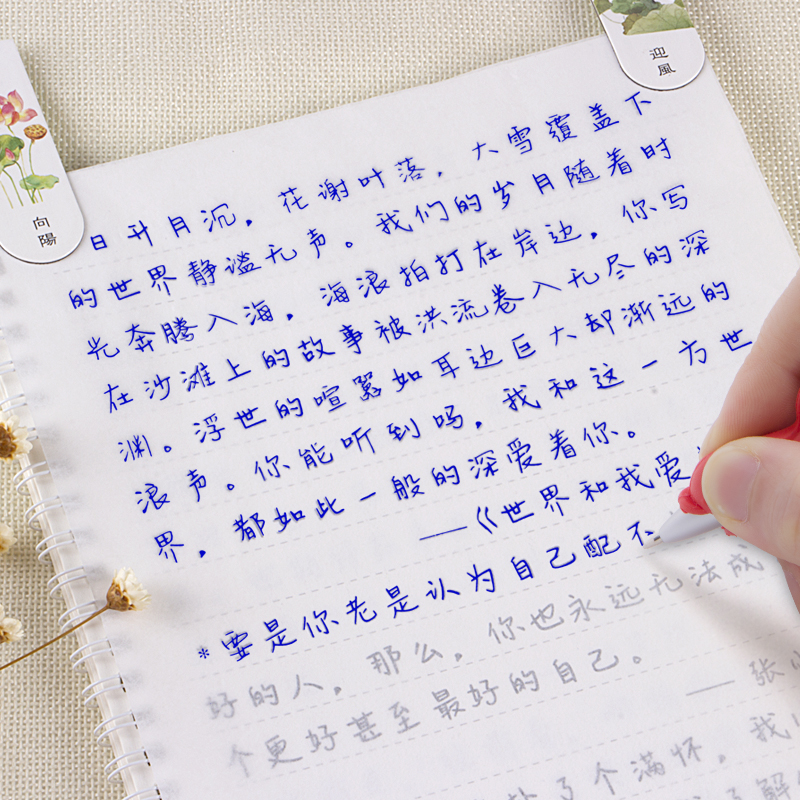 迎風
向陽
日升月沉，花谢叶落，大雪覆盖下
的世界静谧无声。我们的岁月随着时
光奔腾入海，海浪拍打在岸边，你写
在沙滩上的故事被洪流卷入无尽的深
渊。浮世的喧嚣如耳边巨大却渐远的
浪声。你能听到吗，我和这一方世
界，都如此一般的深爱着你。
——《世界和我爱
*要是你老是认为自己配不
好的人，那么，你也永远无法成
个更好甚至最好的自己。
——张
了个满怀，我
了解